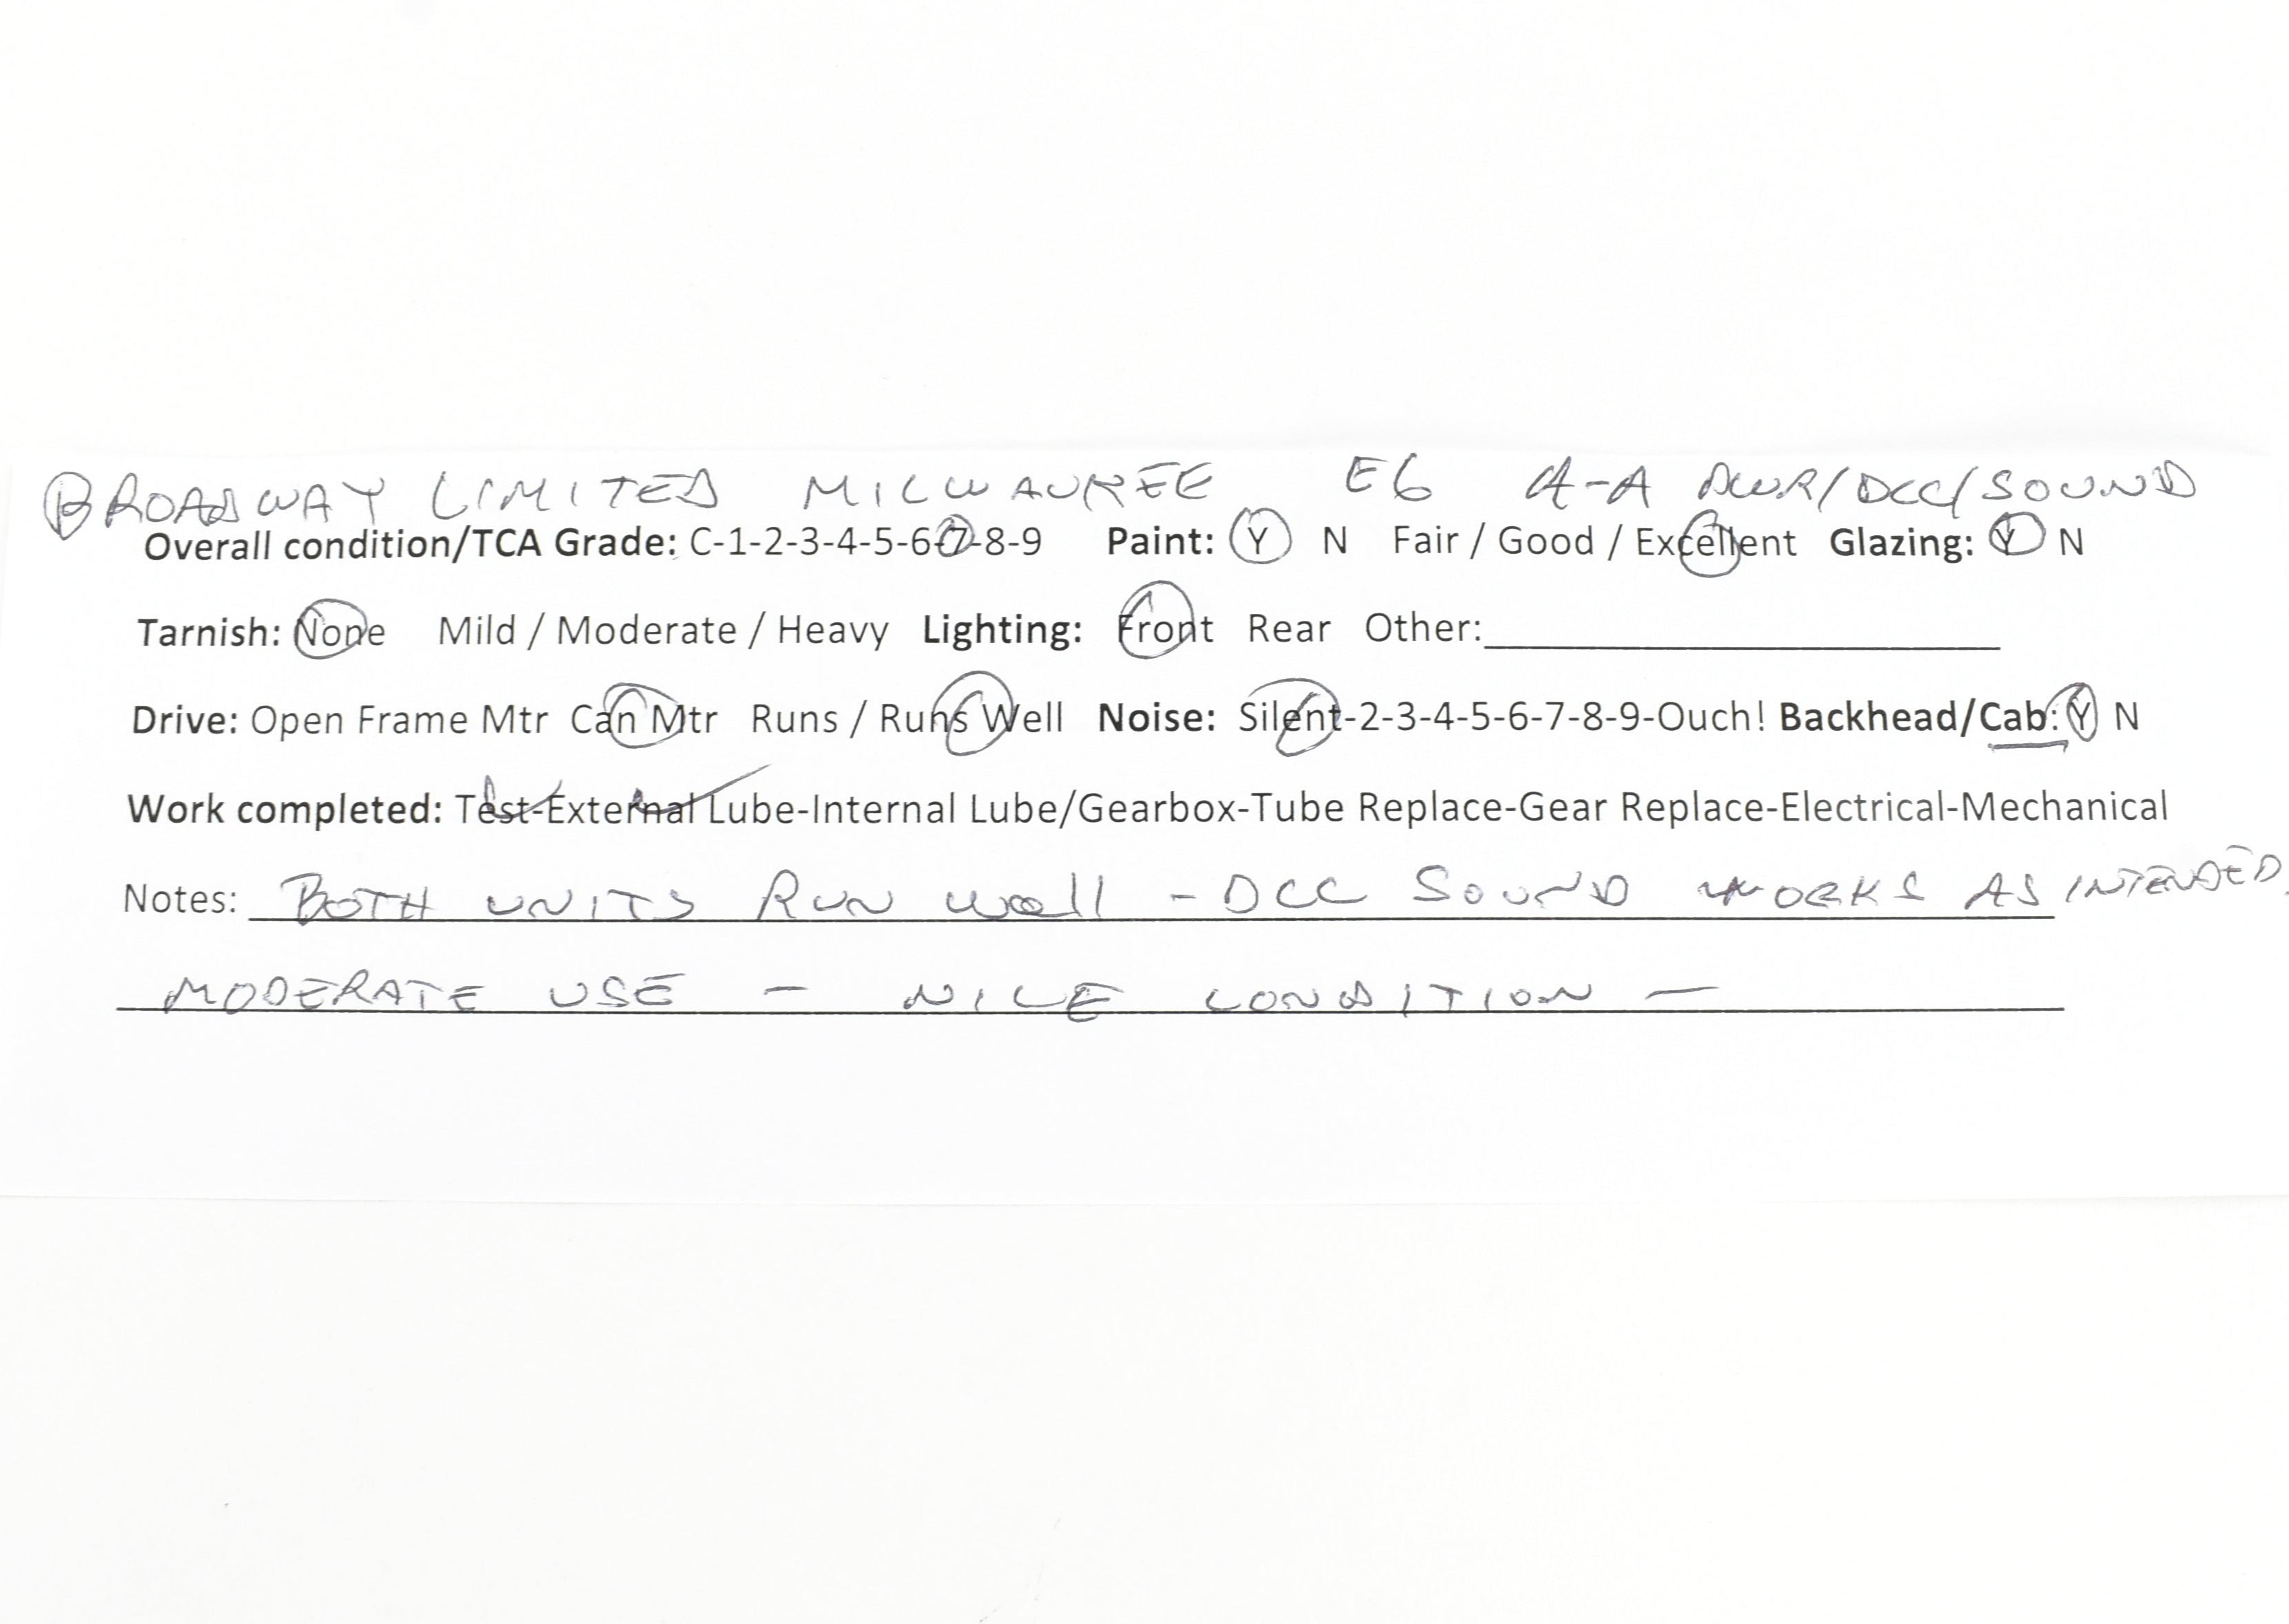 BROADWAY LIMITED MILWAUKEE E6 A-A PWR/DCC/SOUND
Overall condition/TCA Grade: C-1-2-3-4-5-6-7-8-9 Paint: Y N Fair / Good / Excellent Glazing: Y N
Tarnish: None Mild / Moderate / Heavy Lighting: Front Rear Other:
Drive: Open Frame Mtr Can Mtr Runs / Runs Well Noise: Silent-2-3-4-5-6-7-8-9-Ouch! Backhead/Cab: Y N
Work completed: Test-External Lube-Internal Lube/Gearbox-Tube Replace-Gear Replace-Electrical-Mechanical
Notes: BOTH UNITS RUN well - DCC SOUND WORKS AS INTENDED.
MODERATE USE - NICE CONDITION -